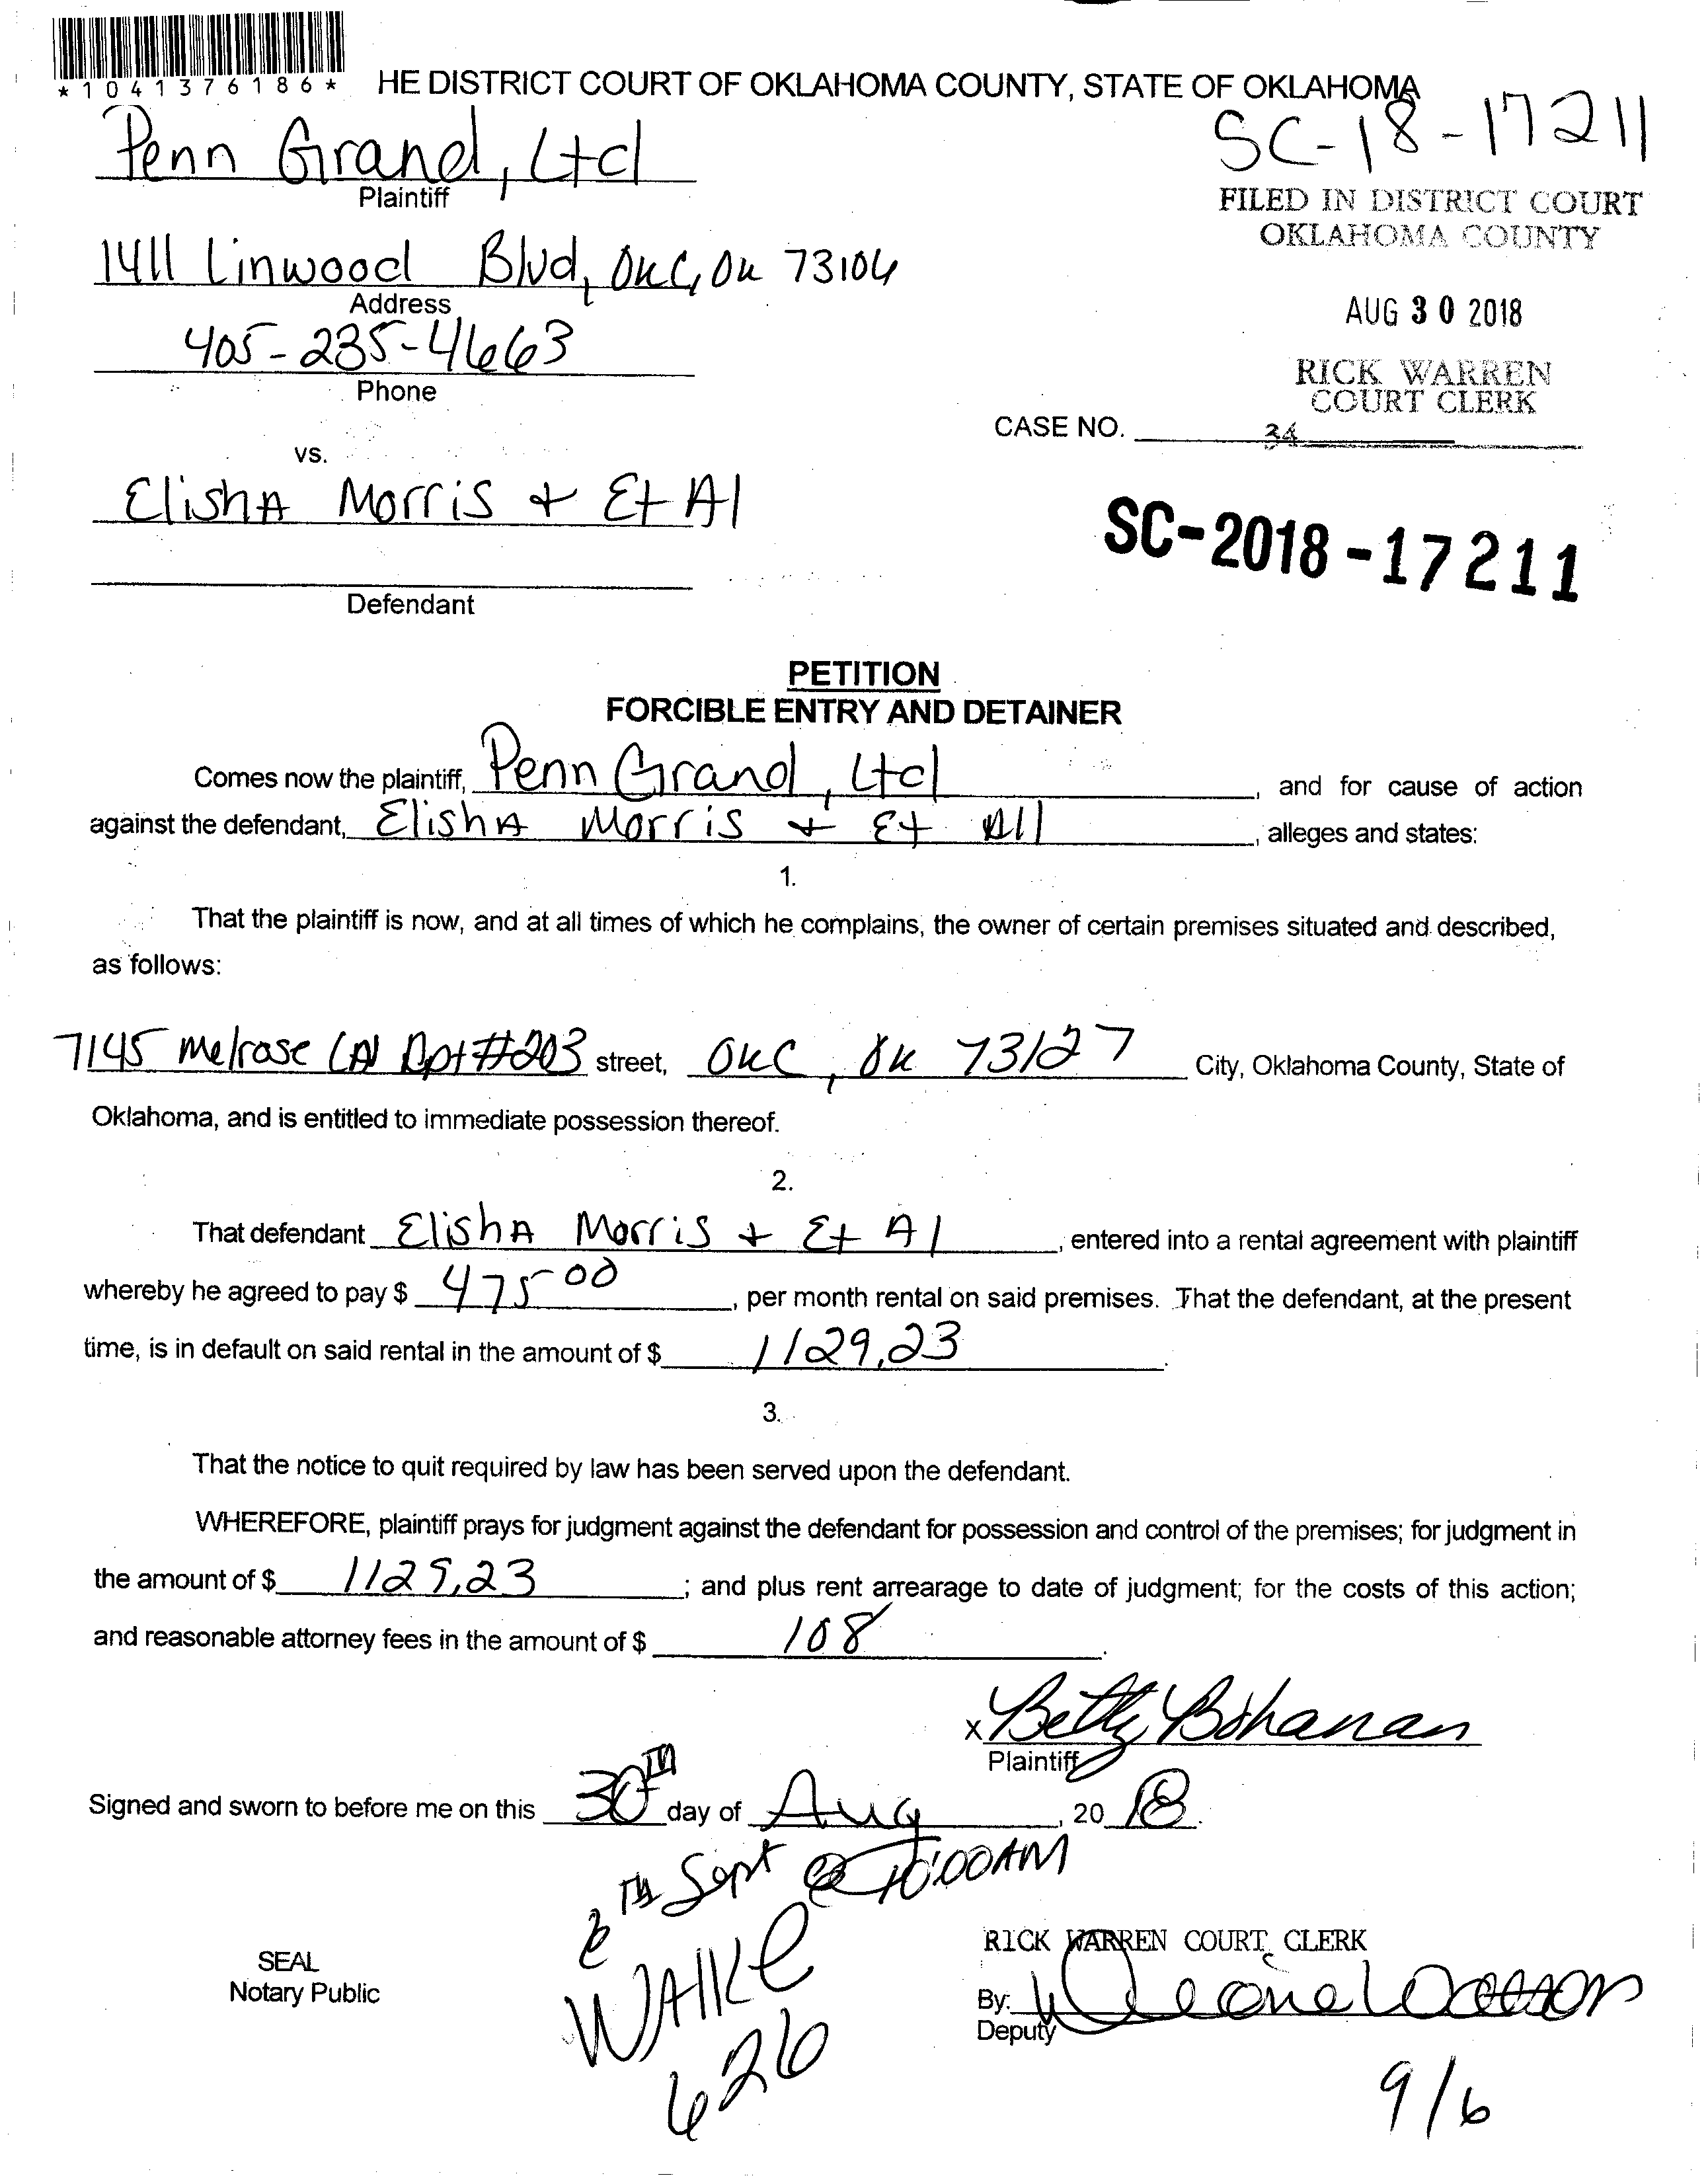 *1041376186*
HE DISTRICT COURT OF OKLAHOMA COUNTY, STATE OF OKLAHOMA
SC-18-17211
Penn Grand, Ltd
Plaintiff
FILED IN DISTRICT COURT
OKLAHOMA COUNTY
1411 Linwood Blvd, OKC, OK 73106
Address
AUG 30 2018
405-235-4663
Phone
RICK WARREN
COURT CLERK
CASE NO. 34
vs.
ElishA Morris + Et Al
SC-2018-17211
Defendant
PETITION
FORCIBLE ENTRY AND DETAINER
Comes now the plaintiff, Penn Grand, Ltd, and for cause of action
against the defendant, ElishA Morris + Et All, alleges and states:
1.
That the plaintiff is now, and at all times of which he complains, the owner of certain premises situated and described,
as follows:
7145 Melrose LN Apt #203 street, OKC, OK 73127 City, Oklahoma County, State of
Oklahoma, and is entitled to immediate possession thereof.
2.
That defendant ElishA Morris + Et Al, entered into a rental agreement with plaintiff
whereby he agreed to pay $ 475 00, per month rental on said premises. That the defendant, at the present
time, is in default on said rental in the amount of $ 1129.23.
3.
That the notice to quit required by law has been served upon the defendant.
WHEREFORE, plaintiff prays for judgment against the defendant for possession and control of the premises; for judgment in
the amount of $ 1129.23; and plus rent arrearage to date of judgment; for the costs of this action;
and reasonable attorney fees in the amount of $ 108.
x Betty Bohanan
Plaintiff
Signed and sworn to before me on this 30TH day of Aug, 2018.
6TH Sept @ 10:00AM
WAlke
626
SEAL
Notary Public
RICK WARREN COURT CLERK
By:
Deputy
9/6